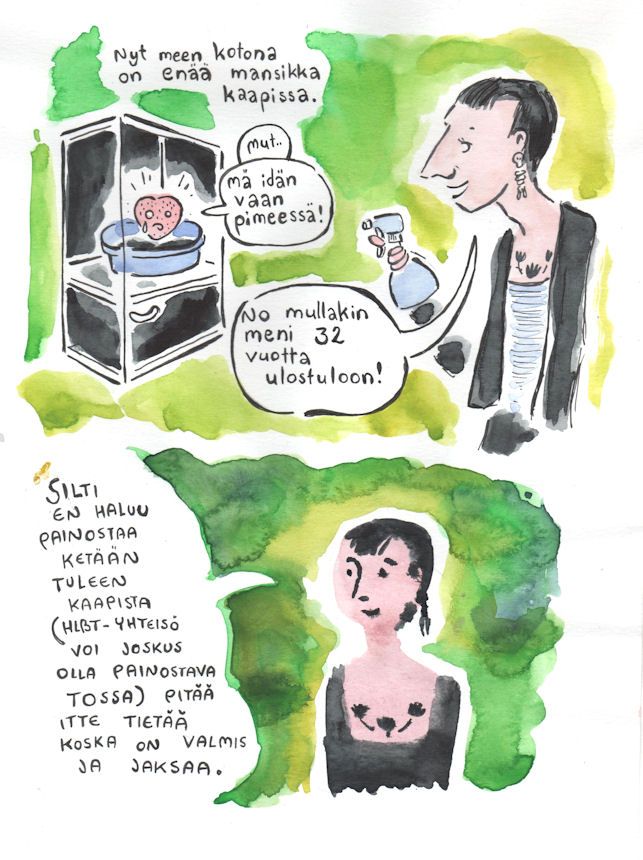 Nyt meen kotona
on enää mansikka
kaapissa.
mut..
mä idän
vaan
pimeessä!
No mullakin
meni 32
vuotta
ulostuloon!
SILTI
EN HALUU
PAINOSTAA
KETÄÄN
TULEEN
KAAPISTA
(HLBT-YHTEISÖ
VOI JOSKUS
OLLA PAINOSTAVA
TOSSA) PITÄÄ
ITTE TIETÄÄ
KOSKA ON VALMIS
JA JAKSAA.